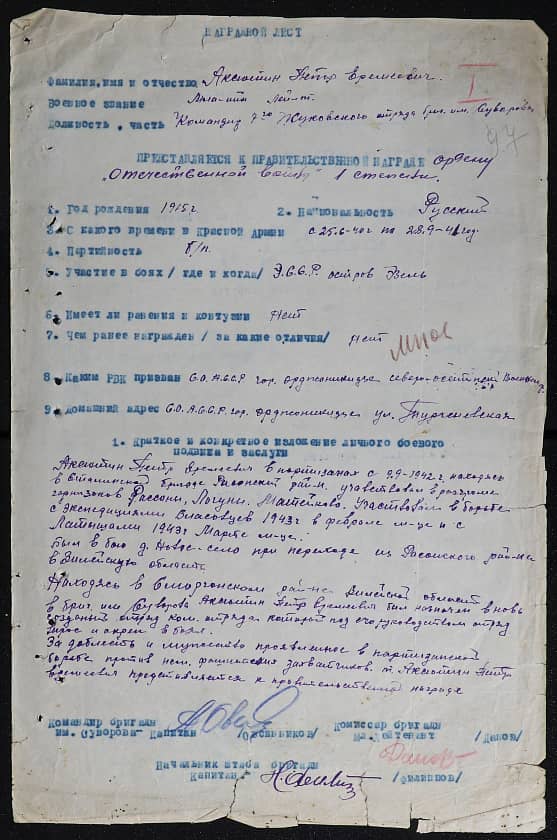 НАГРАДНОЙ ЛИСТ
Фамилия, имя и отчество Аксютин Петр Еремеевич.
I
Военное звание Мла-ший лейт.
Должность, часть Командир 7го Жуковского отряда бриг. им. Суворова
97
ПРЕДСТАВЛЯЕТСЯ К ПРАВИТЕЛЬСТВЕННОЙ НАГРАДЕ ордену
„Отечественной войны" 1 степени.
1. Год рождения 1915 г. 2. Национальность Русский
3. С какого времени в Красной Армии с 25.6-40 г по 28.9-41 год.
4. Партийность б/п.
5. Участие в боях / где и когда/ Э.С.С.Р. остров Эзель
6. Имеет ли ранения и контузии Нет
7. Чем ранее награжден / за какие отличия/ Нет
8. Каким РВК призван С.О.АССР гор. Орджоникидзе северо-осетинский
9. Домашний адрес С.О.А.С.С.Р. гор. Орджоникидзе ул. Тургеневская
1. Краткое и конкретное изложение личного боевого
подвига и заслуги
Аксютин Петр Еремеевич в партизанах с 9.9-1942 г. находясь
в Сталинской бригаде райм. участвовал в разгроме
гарнизонов Россоны, Участвовал в борьбе
с Экспедициями Власовцев 1943 г в феврале м-це и с
Латышами 1943 г Марте м-це.
Был в бою д. Новое-село при переходе из Россонского рай-на
в Вилейскую область.
Находясь в Сморгонском рай-не Вилейской области
в бриг. им Суворова Аксютин Петр Еремеевич был назначен в вновь
созданый отряд ком. отряда которой под его руководством отряд
вырос и окреп в боях.
За доблесть и мужество проявленное в партизанской
борьбе против нем. фашистских захватчиков. т. Аксютин Петр
Еремеевич представляется к правительственной награде
Командир бригады Комиссар бригады
им. Суворова- Капитан /Овсянников/ Мл. лейтенант /Дапов/
Начальник штаба бригады
Капитан /Филиппов/